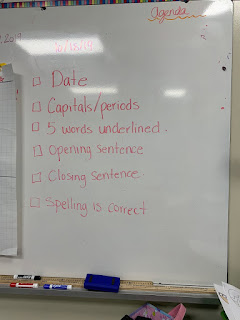 Agenda
2019
10/18/19
Date
Capitals/periods
5 words underlined.
Opening sentence
Closing sentence
Spelling is correct